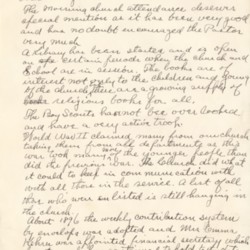 The morning church attendance deserves
special mention as it has been very good
and has no doubt encouraged the Pastor
very much.
A library has been started and is open
at certain periods when the church and
School are in session. The books are of
interest not only to the children and young
of the church, there is a growing supply of
religious books for all.
The Boy Scouts cannot be over looked
and have a very active troop.
World War II claimed many from our church
taking them from all departments as this
war was among the younger people, than
did the previous War. The Church did what
it could to keep in communication with
with all those in the service. A list of all
that who were enlisted is still hanging in
the church.
About 1896 the weekly contribution system
by envelops was adopted and Mrs Emma
was appointed financial secretary